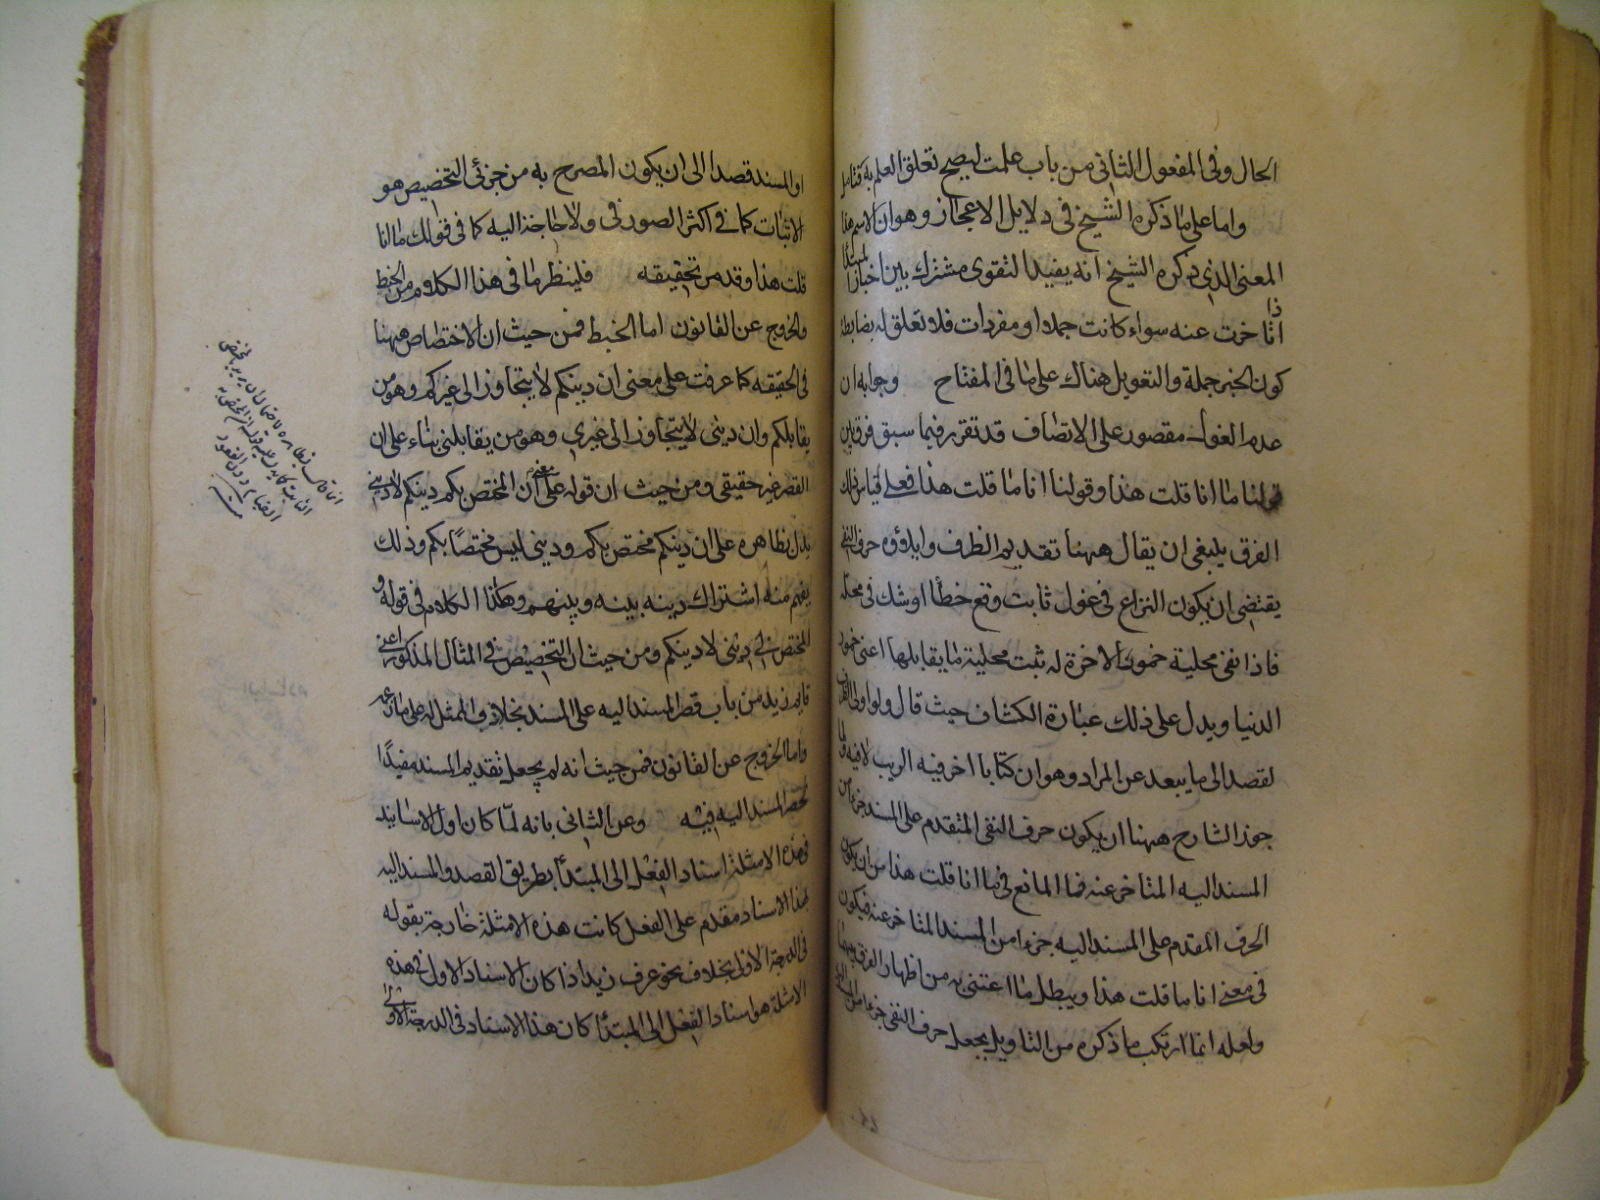 الحال وفى المفعول الثانى من باب علمت ليصح تعلق العلم به فتامل
واما على ما ذكره الشيخ فى دلايل الاعجاز وهو ان الاسم هذا
المعنى الذى ذكره الشيخ انه يفيد التقوى مشترك بين اخبار المبتدأ
اذا اخرت عنه سواء كانت جملا او مفردات فلا تعلق له بضابطة
كون الخبر جملة والتعويل هناك على ما فى المفتاح وجوابه ان
عدم الغول مقصور على الاتصاف قد تقرر فيما سبق فرق بين
قولنا ما انا قلت هذا وقولنا انا ما قلت هذا فعلى قياس ذلك
الفرق ينبغى ان يقال ههنا تقديم الظرف وايلاؤه حرف النفى
يقتضى ان يكون النزاع فى غول ثابت وقع خطأ او شك فى محله
فاذا نفى محلية خمور الاخرة له ثبت محلية ما يقابلها اعنى خمور
الدنيا ويدل على ذلك عبارة الكشاف حيث قال ولو اولى الظرف
لقصد الى ما يبعد عن المراد وهو ان كتابا اخر فيه الريب لا فيه ولما
جوز الشارح ههنا ان يكون حرف النفى المتقدم على المسند جزءا من
المسند اليه المتاخر عنه فما المانع فى ما انا قلت هذا من ان يكون
الحرف المقدم على المسند اليه جزءا من المسند المتاخر عنه فيكون
فى معنى انا ما قلت هذا ويبطل ما اعتنى به من اظهار الفرق بينهما
ولعله انما ارتكب ما ذكره من التاويل بجعل حرف النفى جزءا من المسند اليه
او المسند قصدا الى ان يكون المصرح به من جزئى التخصيص هو
الاثبات كما فى اكثر الصور فى ولا حاجة اليه كما فى قولك ما انا
قلت هذا وقد مر تحقيقه فلينظر ما فى هذا الكلام من الخبط
والخروج عن القانون اما الخبط فمن حيث ان الاختصاص ههنا
فى الحقيقه كما عرفت على معنى ان دينكم لا يتجاوز الى غيركم وهو من
يقابلكم وان دينى لا يتجاوز الى غيرى وهو من يقابلنى بناء على ان
القصر غير حقيقى ومن حيث ان قوله على معنى ان المختص بكم دينكم لا دينى
يدل بظاهره على ان دينكم مختص بكم ودينى ليس مختصا بكم وذلك
يفهم منه اشتراك دينه بينه وبينهم وهكذا الكلام فى قوله و
المختص بى دينى لا دينكم ومن حيث ان التخصيص فى المثال المذكور اعنى
قايم زيد من باب قصر المسند اليه على المسند بخلاف الممثل له على ما زعمه
واما الخروج عن القانون فمن حيث انه لم يجعل تقديم المسند مفيدا
لحصر المسند اليه فيه وعن الثانى بانه لما كان اول الاسانيد
فى هذه الامثلة اسناد الفعل الى المبتدأ بطريق القصد والمسند اليه
بهذا الاسناد مقدم على الفعل كانت هذه الامثلة خارجة بقوله
فى الدرجة الاولى بخلاف نحو عرف زيد اذا كان الاسناد الاول فى هذه
الامثلة هو اسناد الفعل الى المبتدأ كان هذا الاسناد فى الدرجة الاولى
انما قال بظاهره لاحتمال ان يريد بالمختص